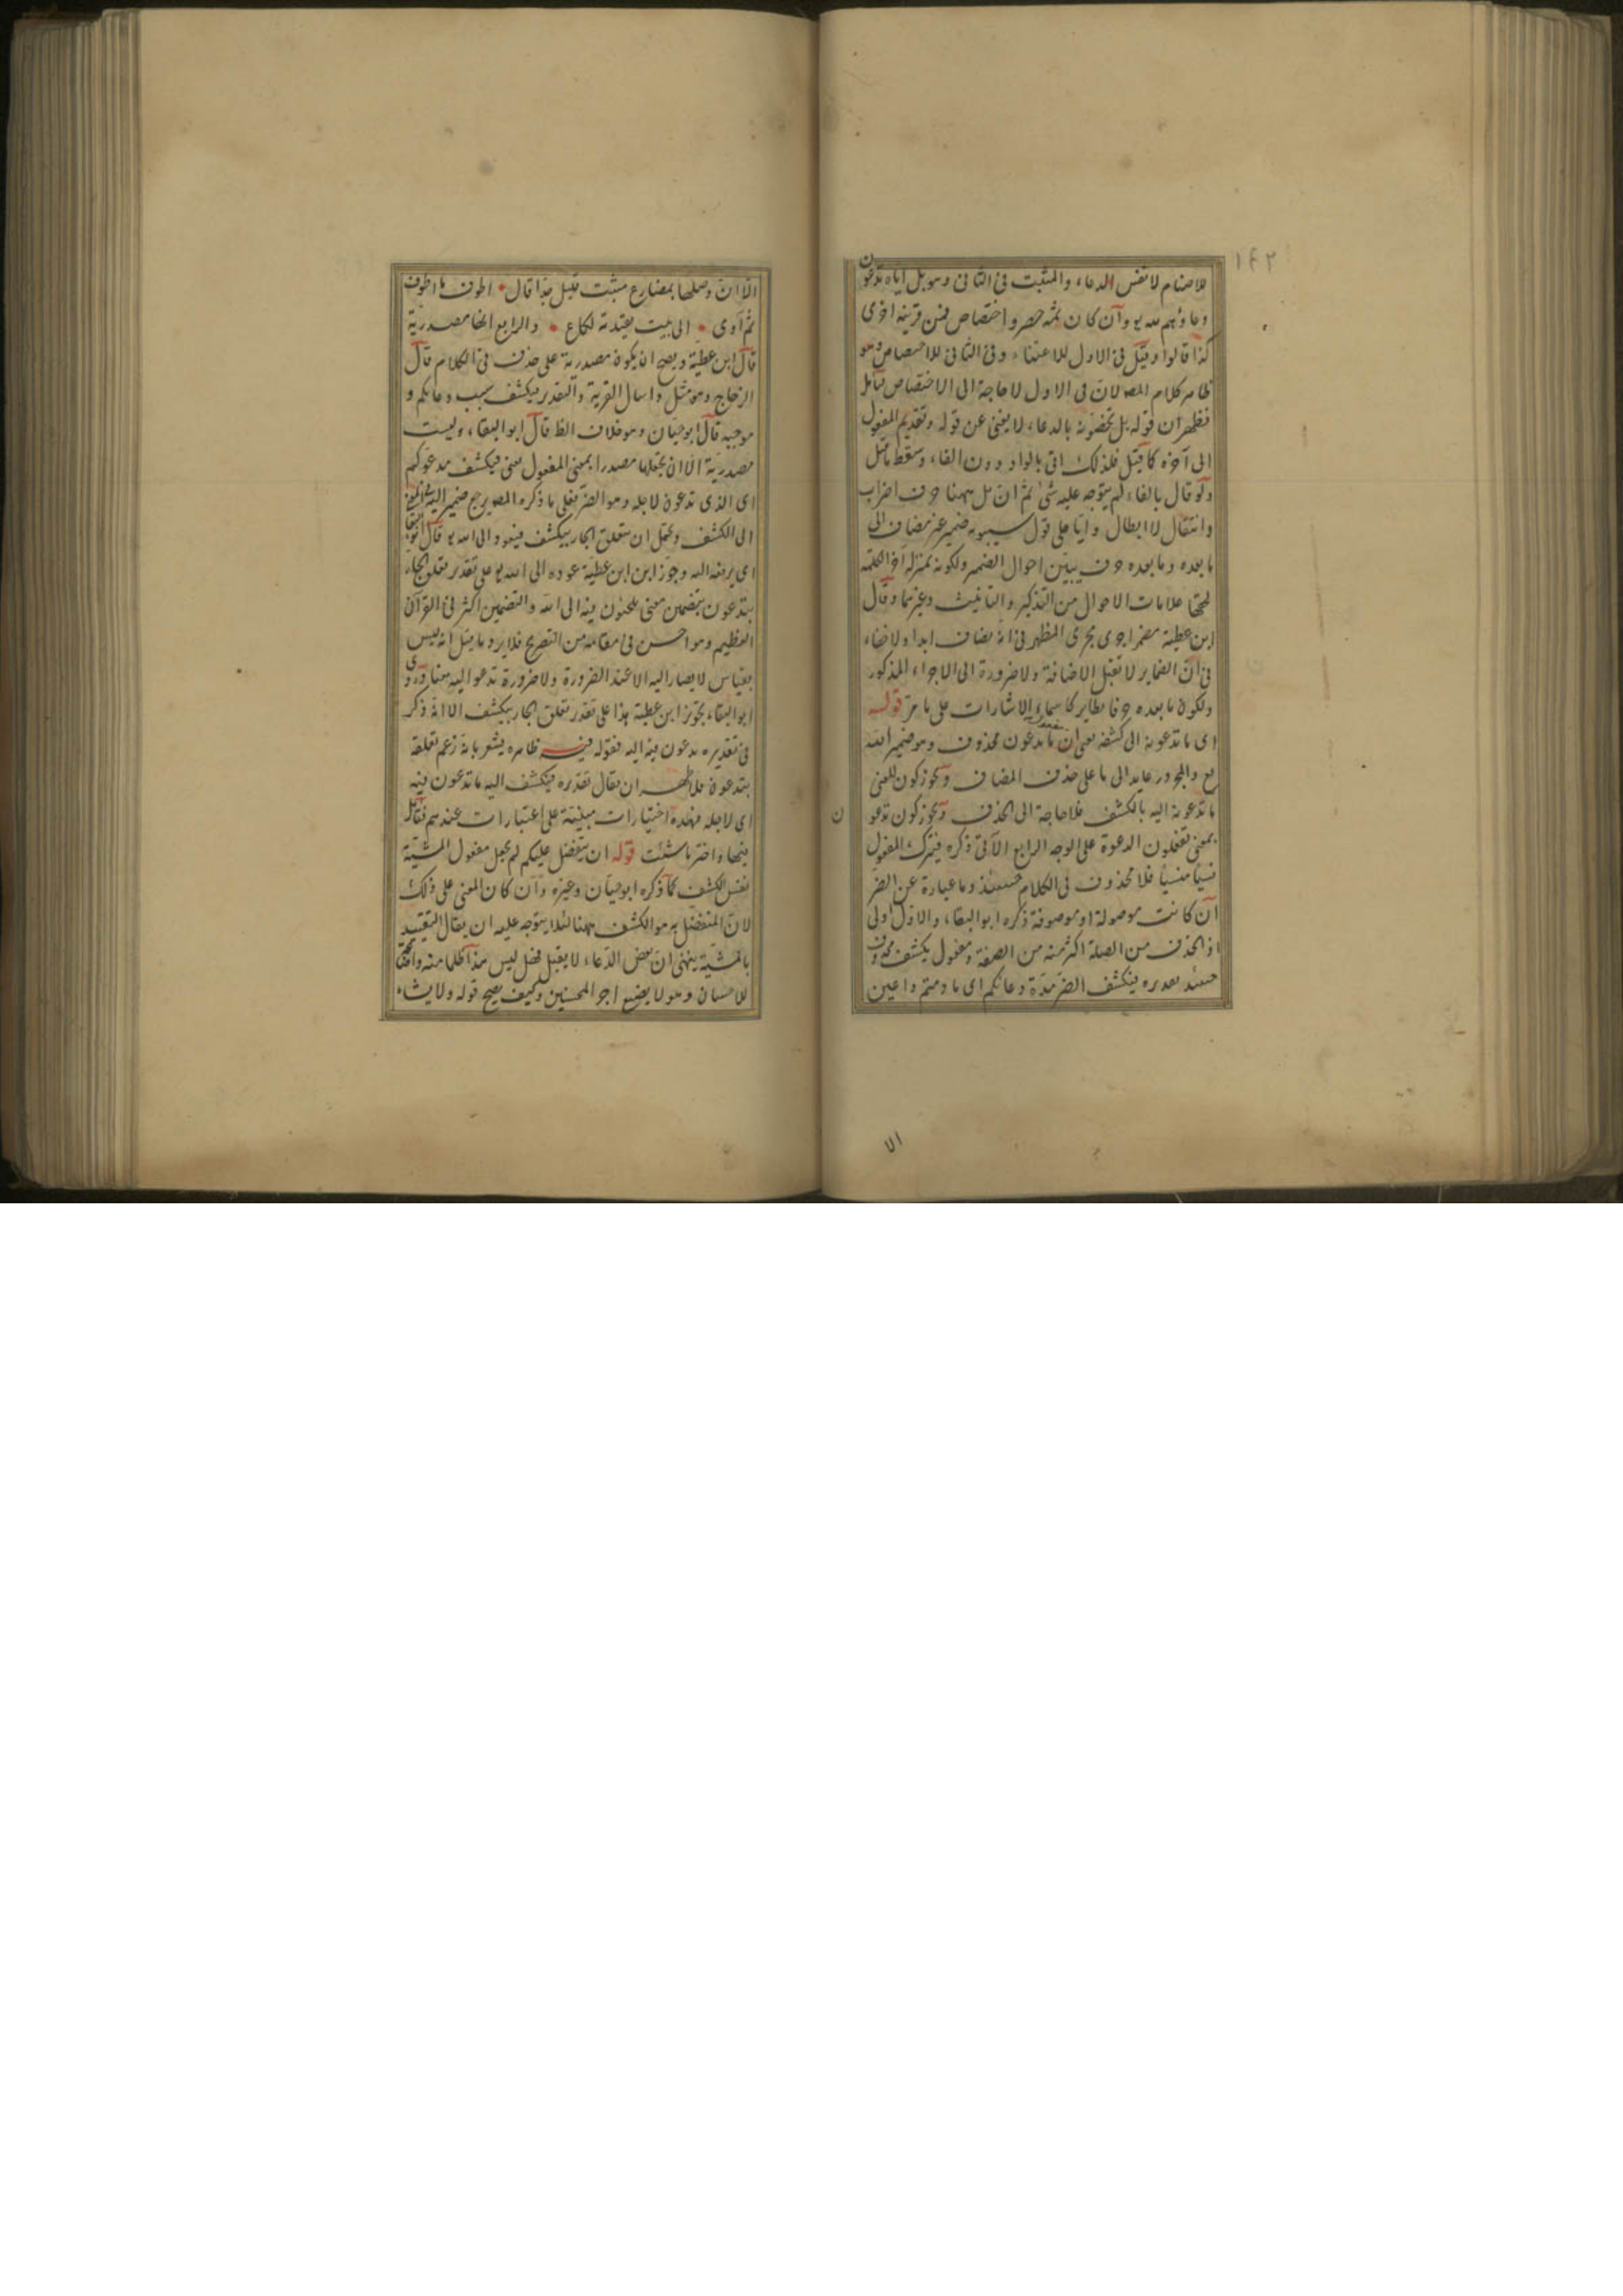 ١٤٢
للاصنام لا نفس الدعاء والمثبت فى الثانى وهو بل اياه تدعون
دعاؤهم لله تع وان كان ثمه حصر واختصاص فمن قرينة اخرى
كذا قالوا وقيل فى الاول للاعتناء وفى الثانى للاختصاص وهو
ظاهر كلام المص لان فى الاول لا حاجة الى الاختصاص تأمل
فظهر ان قوله بل تخصونه بالدعاء لا يغنى عن قوله وتقديم المفعول
الى آخره كما قيل فلذلك اتى بالواو دون الفاء وسقط ما قيل
ولو قال بالفاء لم يتوجه عليه شئ ثم ان بل ههنا حرف اضراب
وانتقال لا ابطال وايا على قول سيبويه ضمير غير مضاف الى
ما بعده وما بعده حرف يبين احوال الضمير ولكونه بمنزلة آخر الكلمة
لحقها علامات الاحوال من التذكير والتأنيث وغيرهما وقال
ابن عطية مضمر اجرى مجرى المظهر فى انه يضاف ابدا ولا خفاء
فى ان الضماير لا تقبل الاضافة ولا ضرورة الى الاجراء المذكور
ولكون ما بعده حرفا نظاير كاسماء الاشارات على ما مر قوله
اى ما تدعونه الى كشفه يعنى ان مفعول تدعون محذوف وهو ضمير الله
تع والمجرور عايد الى ما على حذف المضاف ويجوز كون المعنى
ما تدعونه اليه بالكشف فلا حاجة الى الحذف ويجوز كون تدعون
بمعنى تفعلون الدعوة على الوجه الرابع الآتى ذكره فيترك المفعول
نسيا منسيا فلا محذوف فى الكلام حينئذ وما عبارة عن الضر
ان كانت موصولة او موصوفة ذكره ابو البقاء والاول اولى
اذ الحذف من الصلة اكثر منه من الصفة ومفعول يكشف محذوف
حينئذ تقديره فيكشف الضر مدة دعائكم اى ما دمتم داعين
الا ان وصلها بمضارع مثبت قليل جدا قال اطوف ما اطوف
ثم آوى الى بيت قعيدته لكاع والرابع انها مصدرية
قال ابن عطية ويصح ان يكون مصدرية على حذف فى الكلام قال
الزجاج وهو مثل واسال القرية والتقدير فيكشف سبب دعائكم و
موجبه قال ابو حيان وهو خلاف الظ قال ابو البقاء وليست
مصدرية الا ان تجعلها مصدرا بمعنى المفعول يعنى فيكشف مدعوكم
اى الذى تدعون لاجله وهو الضر فعلى ما ذكره المص يرجع ضمير اليه فى المعنى
الى الكشف ويحتمل ان يتعلق الجار بيكشف فيعود الى الله تع قال ابو البقا
اى يرفعه اليه وجوز ابن ابن عطية عوده الى الله تع على تقدير تعلق الجار
بتدعون بتضمين معنى يلجئون فيه الى الله والتضمين اكثر فى القرآن
العظيم وهو احسن فى مقامه من التصريح فلا يرد ما قيل انه ليس
بقياس لا يصار اليه الا عند الضرورة ولا ضرورة تدعو اليه هنا وروى
ابو البقاء تجويز ابن عطية هذا على تقدير تعلق الجار بيكشف الا انه ذكر
فى تقديره تدعون فيه اليه فقوله فيه ظاهره يشعر بانه زعم تعلقه
بتدعون فلا ظهر ان يقال تقديره فيكشف اليه ما تدعون فيه
اى لاجله فهذه اختيارات مبنية على اعتبارات عندهم فتأمل
فيها واختر ما شئت قوله ان يتفضل عليكم لم يجعل مفعول المشية
نفس الكشف كما ذكره ابو حيان وغيره وان كان المعنى على ذلك
لان المتفضل به هو الكشف ههنا لئلا يتوجه عليه ان يقال التقييد
بالمشية ينهى ان بعض الدعاء لا يقبل فضل ليس هذا
للاحسان وهو لا يضيع اجر المحسنين وكيف يصح قوله ولا يشاء